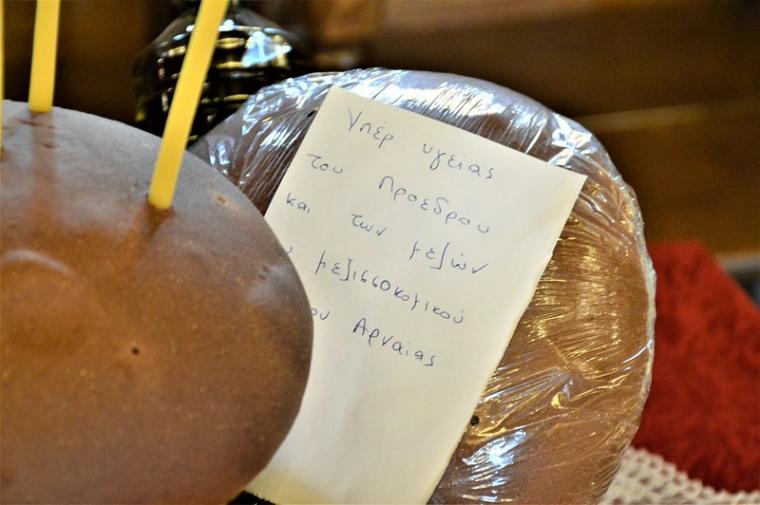 Υπέρ υγείας
του Προέδρου
και των μελών
μελισσοκομικού
ου Αρναίας